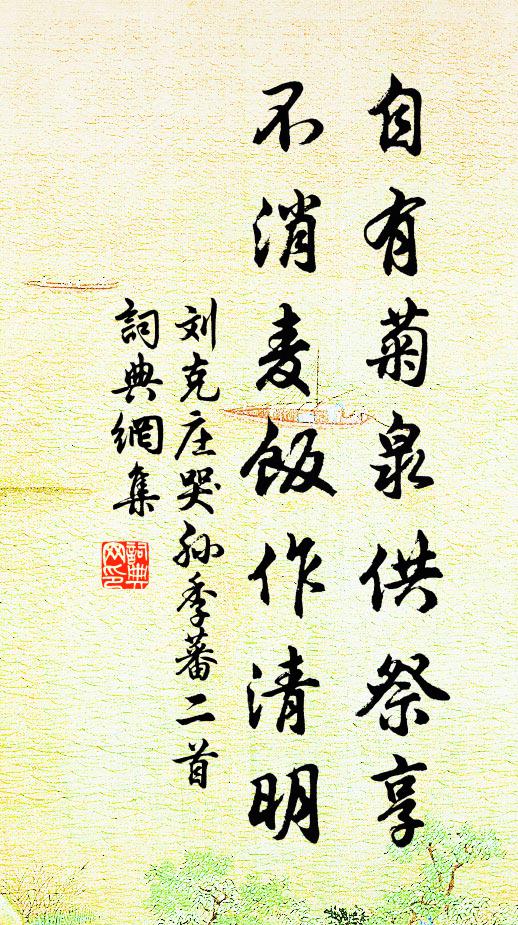 自有菊泉供祭享
不消麦飯作清明
刘克庄哭孙季蕃二首
詞典網集
詞典网印